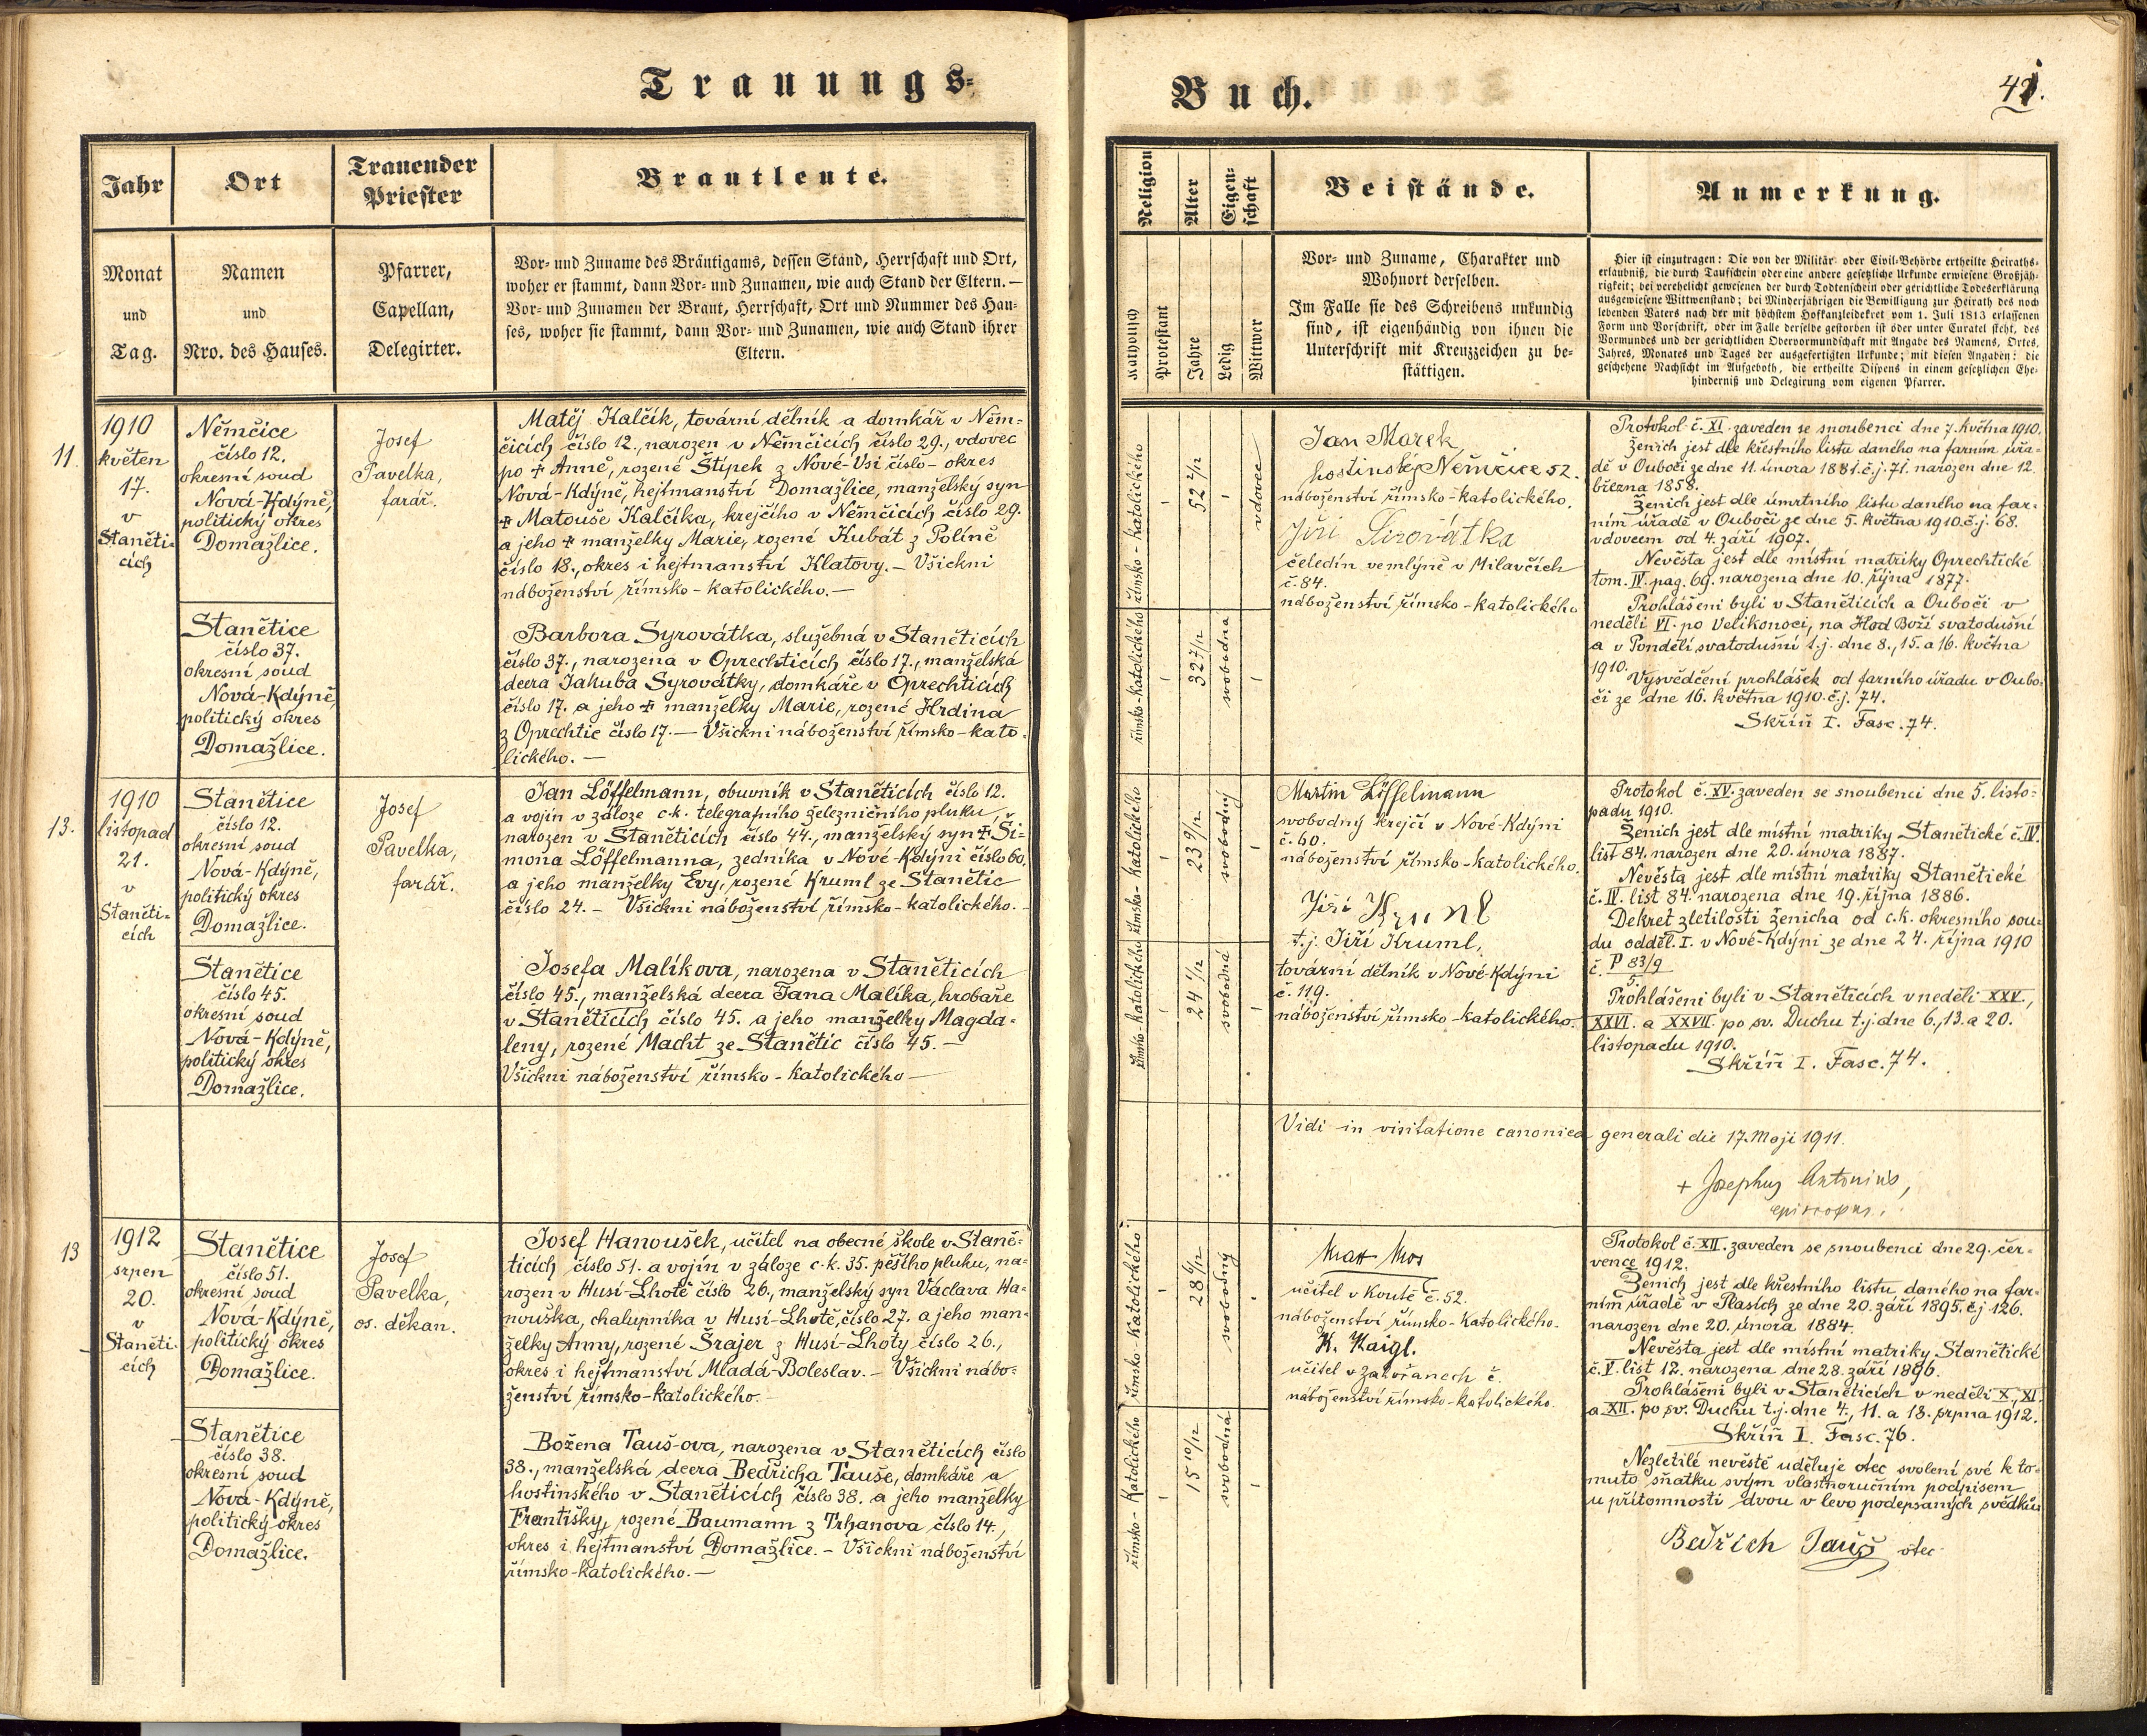 Trauungs-
Jahr
Ort
Trauender
Priester
Brautleute.
Monat
und
Tag.
Namen
und
Nro. des Hauses.
Pfarrer,
Capellan,
Delegirter.
Vor- und Zuname des Bräutigams, dessen Stand, Herrschaft und Ort,
woher er stammt, dann Vor- und Zunamen, wie auch Stand der Eltern. —
Vor- und Zunamen der Braut, Herrschaft, Ort und Nummer des Hau-
ses, woher sie stammt, dann Vor- und Zunamen, wie auch Stand ihrer
Eltern.
11.
1910
květen
17.
v
Staněti-
cích
Němčice
číslo 12.
okresní soud
Nová-Kdýně,
politický okres
Domažlice.
Josef
Pavelka,
farář.
Matěj Kalčík, tovární dělník a domkář v Něm-
čicích číslo 12., narozen v Němčicích číslo 29., vdovec
po ✠ Anně, rozené Štípek z Nové-Vsi číslo - okres
Nová-Kdýně, hejtmanství Domažlice, manželský syn
✠ Matouše Kalčíka, krejčího v Němčicích číslo 29.
a jeho ✠ manželky Marie, rozené Kubát z Políně
číslo 18., okres i hejtmanství Klatovy. — Všickni
náboženství římsko-katolického. —
Stanětice
číslo 37.
okresní soud
Nová-Kdýně,
politický okres
Domažlice.
Barbora Syrovátka, služebná v Staněticích
číslo 37., narozena v Oprechticích číslo 17., manželská
dcera Jakuba Syrovátky, domkáře v Oprechticích
číslo 17. a jeho ✠ manželky Marie, rozené Hrdina
z Oprechtic číslo 17. — Všickni náboženství římsko-kato-
lického. —
13.
1910
listopad
21.
v
Staněti-
cích
Stanětice
číslo 12.
okresní soud
Nová-Kdýně,
politický okres
Domažlice.
Josef
Pavelka,
farář.
Jan Löffelmann, obuvník v Staněticích číslo 12.
a vojín v záloze c.k. telegrafního železničního pluku,
narozen v Staněticích číslo 44., manželský syn ✠ Ši-
mona Löffelmanna, zedníka v Nové-Kdýni číslo 60.
a jeho manželky Evy, rozené Kruml ze Stanětic
číslo 24. — Všickni náboženství římsko-katolického. —
Stanětice
číslo 45.
okresní soud
Nová-Kdýně,
politický okres
Domažlice.
Josefa Malíkova, narozena v Staněticích
číslo 45., manželská dcera Jana Malíka, hrobaře
v Staněticích číslo 45. a jeho manželky Magda-
leny, rozené Macht ze Stanětic číslo 45. —
Všickni náboženství římsko-katolického —
13
1912
srpen
20.
v
Staněti-
cích
Stanětice
číslo 51.
okresní soud
Nová-Kdýně,
politický okres
Domažlice.
Josef
Pavelka,
os. děkan.
Josef Hanoušek, učitel na obecné škole v Staně-
ticích číslo 51. a vojín v záloze c.k. 35. pěšího pluku, na-
rozen v Husí-Lhotě číslo 26., manželský syn Václava Ha-
nouška, chalupníka v Husí-Lhotě, číslo 27. a jeho man-
želky Anny, rozené Šrajer z Husí-Lhoty číslo 26.,
okres i hejtmanství Mladá-Boleslav. — Všickni nábo-
ženství římsko-katolického. —
Stanětice
číslo 38.
okresní soud
Nová-Kdýně,
politický okres
Domažlice.
Božena Tauš-ova, narozena v Staněticích číslo
38., manželská dcera Bedřicha Tauše, domkáře a
hostinského v Staněticích číslo 38. a jeho manželky
Františky, rozené Baumann z Trhanova číslo 14.,
okres i hejtmanství Domažlice. — Všickni náboženství
římsko-katolického. —
Buch.
Religion
Alter
Eigen-
schaft
Beistände.
Anmerkung.
Katholisch
Protestant
Jahre
Ledig
Wittwer
Vor- und Zuname, Charakter und
Wohnort derselben.
Im Falle sie des Schreibens unkundig
sind, ist eigenhändig von ihnen die
Unterschrift mit Kreuzzeichen zu be-
stättigen.
Hier ist einzutragen: Die von der Militär- oder Civil-Behörde ertheilte Heiraths-
erlaubniß, die durch Taufschein oder eine andere gesetzliche Urkunde erwiesene Großjäh-
rigkeit; bei verehelicht gewesenen der durch Todtenschein oder gerichtliche Todeserklärung
ausgewiesene Wittwenstand; bei Minderjährigen die Bewilligung zur Heirath des noch
lebenden Vaters nach der mit höchstem Hofkanzleidekret vom 1. Juli 1813 erlassenen
Form und Vorschrift, oder im Falle derselbe gestorben ist oder unter Curatel steht, des
Vormundes und der gerichtlichen Obervormundschaft mit Angabe des Namens, Ortes,
Jahres, Monates und Tages der ausgefertigten Urkunde; mit diesen Angaben: die
geschehene Nachsicht im Aufgeboth, die ertheilte Dispens in einem gesetzlichen Ehe-
hinderniß und Delegirung vom eigenen Pfarrer.
římsko-katolického
52 2/12
vdovec
Jan Marek
hostinský Němčice 52.
náboženství římsko-katolického.
Jiří Sirovátka
čeledín ve mlýně v Milavčích
č. 84.
náboženství římsko-katolického
římsko-katolického
32 7/12
svobodna
Protokol č. XI. zaveden se snoubenci dne 7. května 1910.
Ženich jest dle křestního listu daného na farním úřa-
dě v Ouboči ze dne 11. února 1881. č.j. 71. narozen dne 12.
března 1858.
Ženich jest dle úmrtního listu daného na far-
ním úřadě v Ouboči ze dne 5. května 1910. č.j. 68.
vdovcem od 4. září 1907.
Nevěsta jest dle místní matriky Oprechtické
tom. IV. pag. 69. narozena dne 10. října 1877.
Prohlášeni byli v Staněticích a Ouboči v
neděli VI. po Velikonoci, na Hod Boží svatodušní
a v Pondělí svatodušní t.j. dne 8., 15. a 16. května
1910.
Vysvědčení prohlášek od farního úřadu v Oubo-
či ze dne 16. května 1910. č.j. 74.
Skříň I. Fasc. 74.
římsko-katolického
23 9/12
svobodný
Martin Löffelmann
svobodný krejčí v Nové-Kdýni
č. 60.
náboženství římsko-katolického.
Jiří Kruml
t.j. Jiří Kruml,
tovární dělník v Nové-Kdýni
č. 119.
náboženství římsko-katolického.
římsko-katolického
24 1/12
svobodná
Protokol č. XV. zaveden se snoubenci dne 5. listo-
padu 1910.
Ženich jest dle místní matriky Stanětické č. IV.
list 84. narozen dne 20. února 1887.
Nevěsta jest dle místní matriky Stanětické
č. IV. list 84. narozena dne 19. října 1886.
Dekret zletilosti ženicha od c.k. okresního sou-
du odděl. I. v Nové-Kdýni ze dne 24. října 1910
č. P 83/9
5.
Prohlášeni byli v Staněticích v neděli XXV.,
XXVI. a XXVII. po sv. Duchu t.j. dne 6., 13. a 20.
listopadu 1910.
Skříň I. Fasc. 74.
Vidi in visitatione canonica generali die 17. Maji 1911.
+ Josephus Antonius,
episcopus.
římsko-katolického
28 6/12
svobodný
učitel v Koutě č. 52.
náboženství římsko-katolického.
K. Kaigl.
učitel v Zahořanech č.
náboženství římsko-katolického.
římsko-katolického
15 10/12
svobodná
Protokol č. XII. zaveden se snoubenci dne 29. čer-
vence 1912.
Ženich jest dle křestního listu daného na far-
ním úřadě v Plasích ze dne 20. září 1895. č.j. 126.
narozen dne 20. února 1884.
Nevěsta jest dle místní matriky Stanětické
č. V. list 12. narozena dne 28. září 1896.
Prohlášeni byli v Staněticích v neděli X., XI.
a XII. po sv. Duchu t.j. dne 4., 11. a 18. srpna 1912.
Skříň I. Fasc. 76.
Nezletilé nevěstě uděluje otec svolení své k to-
muto sňatku svým vlastnoručním podpisem
u přítomnosti dvou v levo podepsaných svědků.
Bedřich Tauš otec